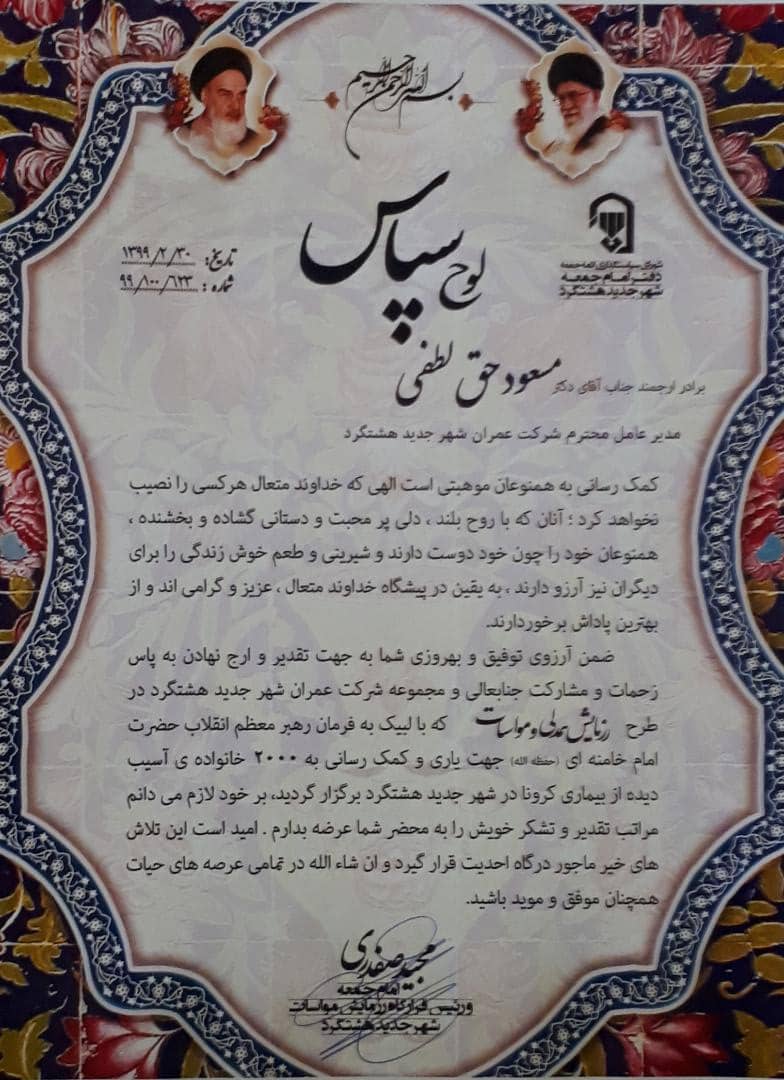 بسم الله الرحمن الرحیم
لوح سپاس
شورای سیاستگذاری ائمه جمعه
دفتر امام جمعه
شهر جدید هشتگرد
تاریخ: ۱۳۹۹/۲/۳۰
شماره: ۹۹/۱۰۰/۶۲۳
برادر ارجمند جناب آقای دکتر مسعود حق لطفی
مدیر عامل محترم شرکت عمران شهر جدید هشتگرد
کمک رسانی به همنوعان موهبتی است الهی که خداوند متعال هرکسی را نصیب
نخواهد کرد ؛ آنان که با روح بلند ، دلی پر محبت و دستانی گشاده و بخشنده ،
همنوعان خود را چون خود دوست دارند و شیرینی و طعم خوش زندگی را برای
دیگران نیز آرزو دارند ، به یقین در پیشگاه خداوند متعال ، عزیز و گرامی اند و از
بهترین پاداش برخوردارند.
ضمن آرزوی توفیق و بهروزی شما به جهت تقدیر و ارج نهادن به پاس
زحمات و مشارکت جنابعالی و مجموعه شرکت عمران شهر جدید هشتگرد در
طرح رزمایش همدلی و مواسات که با لبیک به فرمان رهبر معظم انقلاب حضرت
امام خامنه ای (حفظه الله) جهت یاری و کمک رسانی به ۲۰۰۰ خانواده ی آسیب
دیده از بیماری کرونا در شهر جدید هشتگرد برگزار گردید، بر خود لازم می دانم
مراتب تقدیر و تشکر خویش را به محضر شما عرضه بدارم . امید است این تلاش
های خیر ماجور درگاه احدیت قرار گیرد و ان شاء الله در تمامی عرصه های حیات
همچنان موفق و موید باشید.
مجید صفدری
امام جمعه
و رئیس قرارگاه رزمایش مواسات
شهر جدید هشتگرد